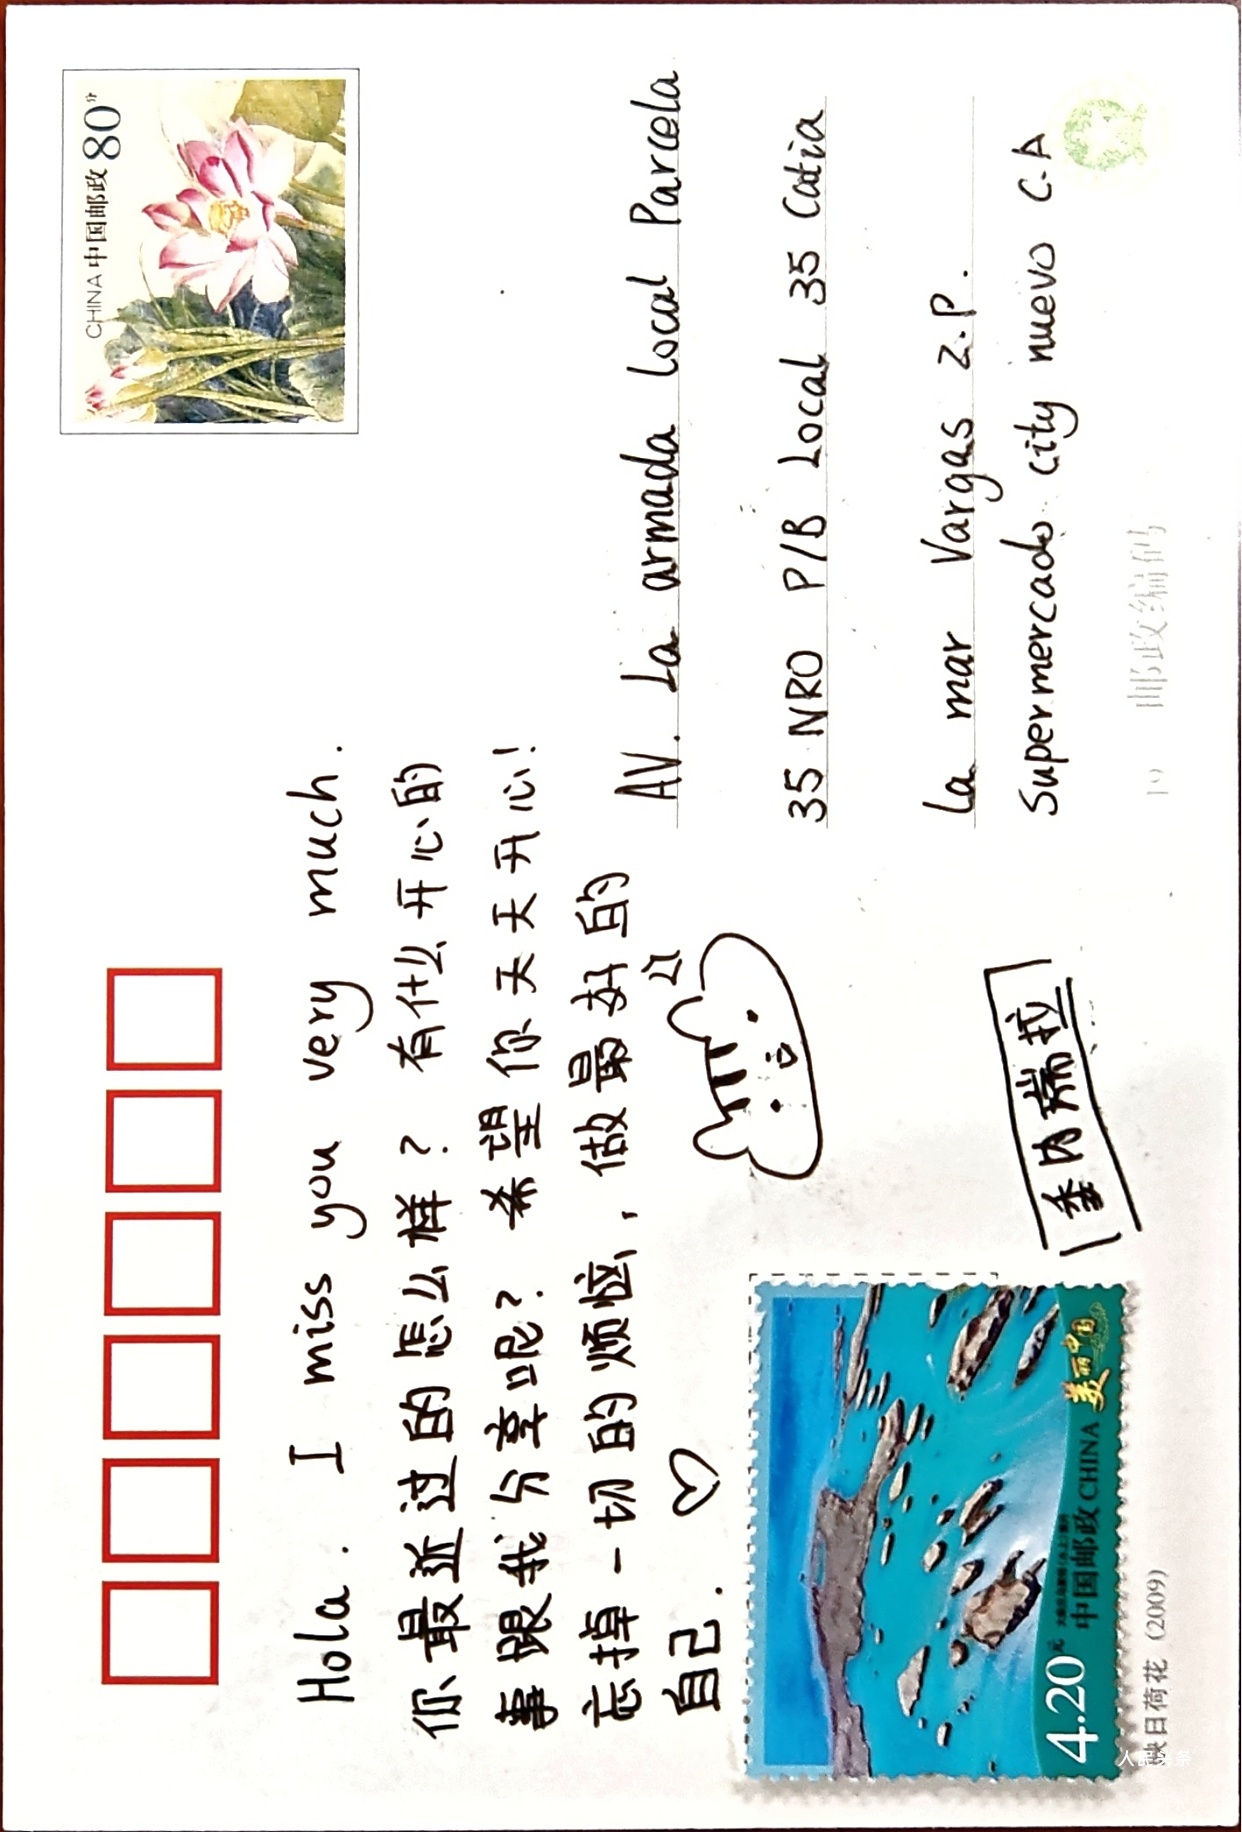 CHINA 中国邮政 80分
Hola. I miss you very much.
你最近过的怎么样？有什么开心的
事跟我分享呢？希望你天天开心！
忘掉一切的烦恼，做最好的
自己.
AV. La armada Local Parcela
35 NRO P/B Local 35 Catia
La mar Vargas Z.P.
Supermercado city nuevo C.A
委内瑞拉
美丽中国
4.20元
中国邮政 CHINA
映日荷花 (2009)
邮政编码
人民头条